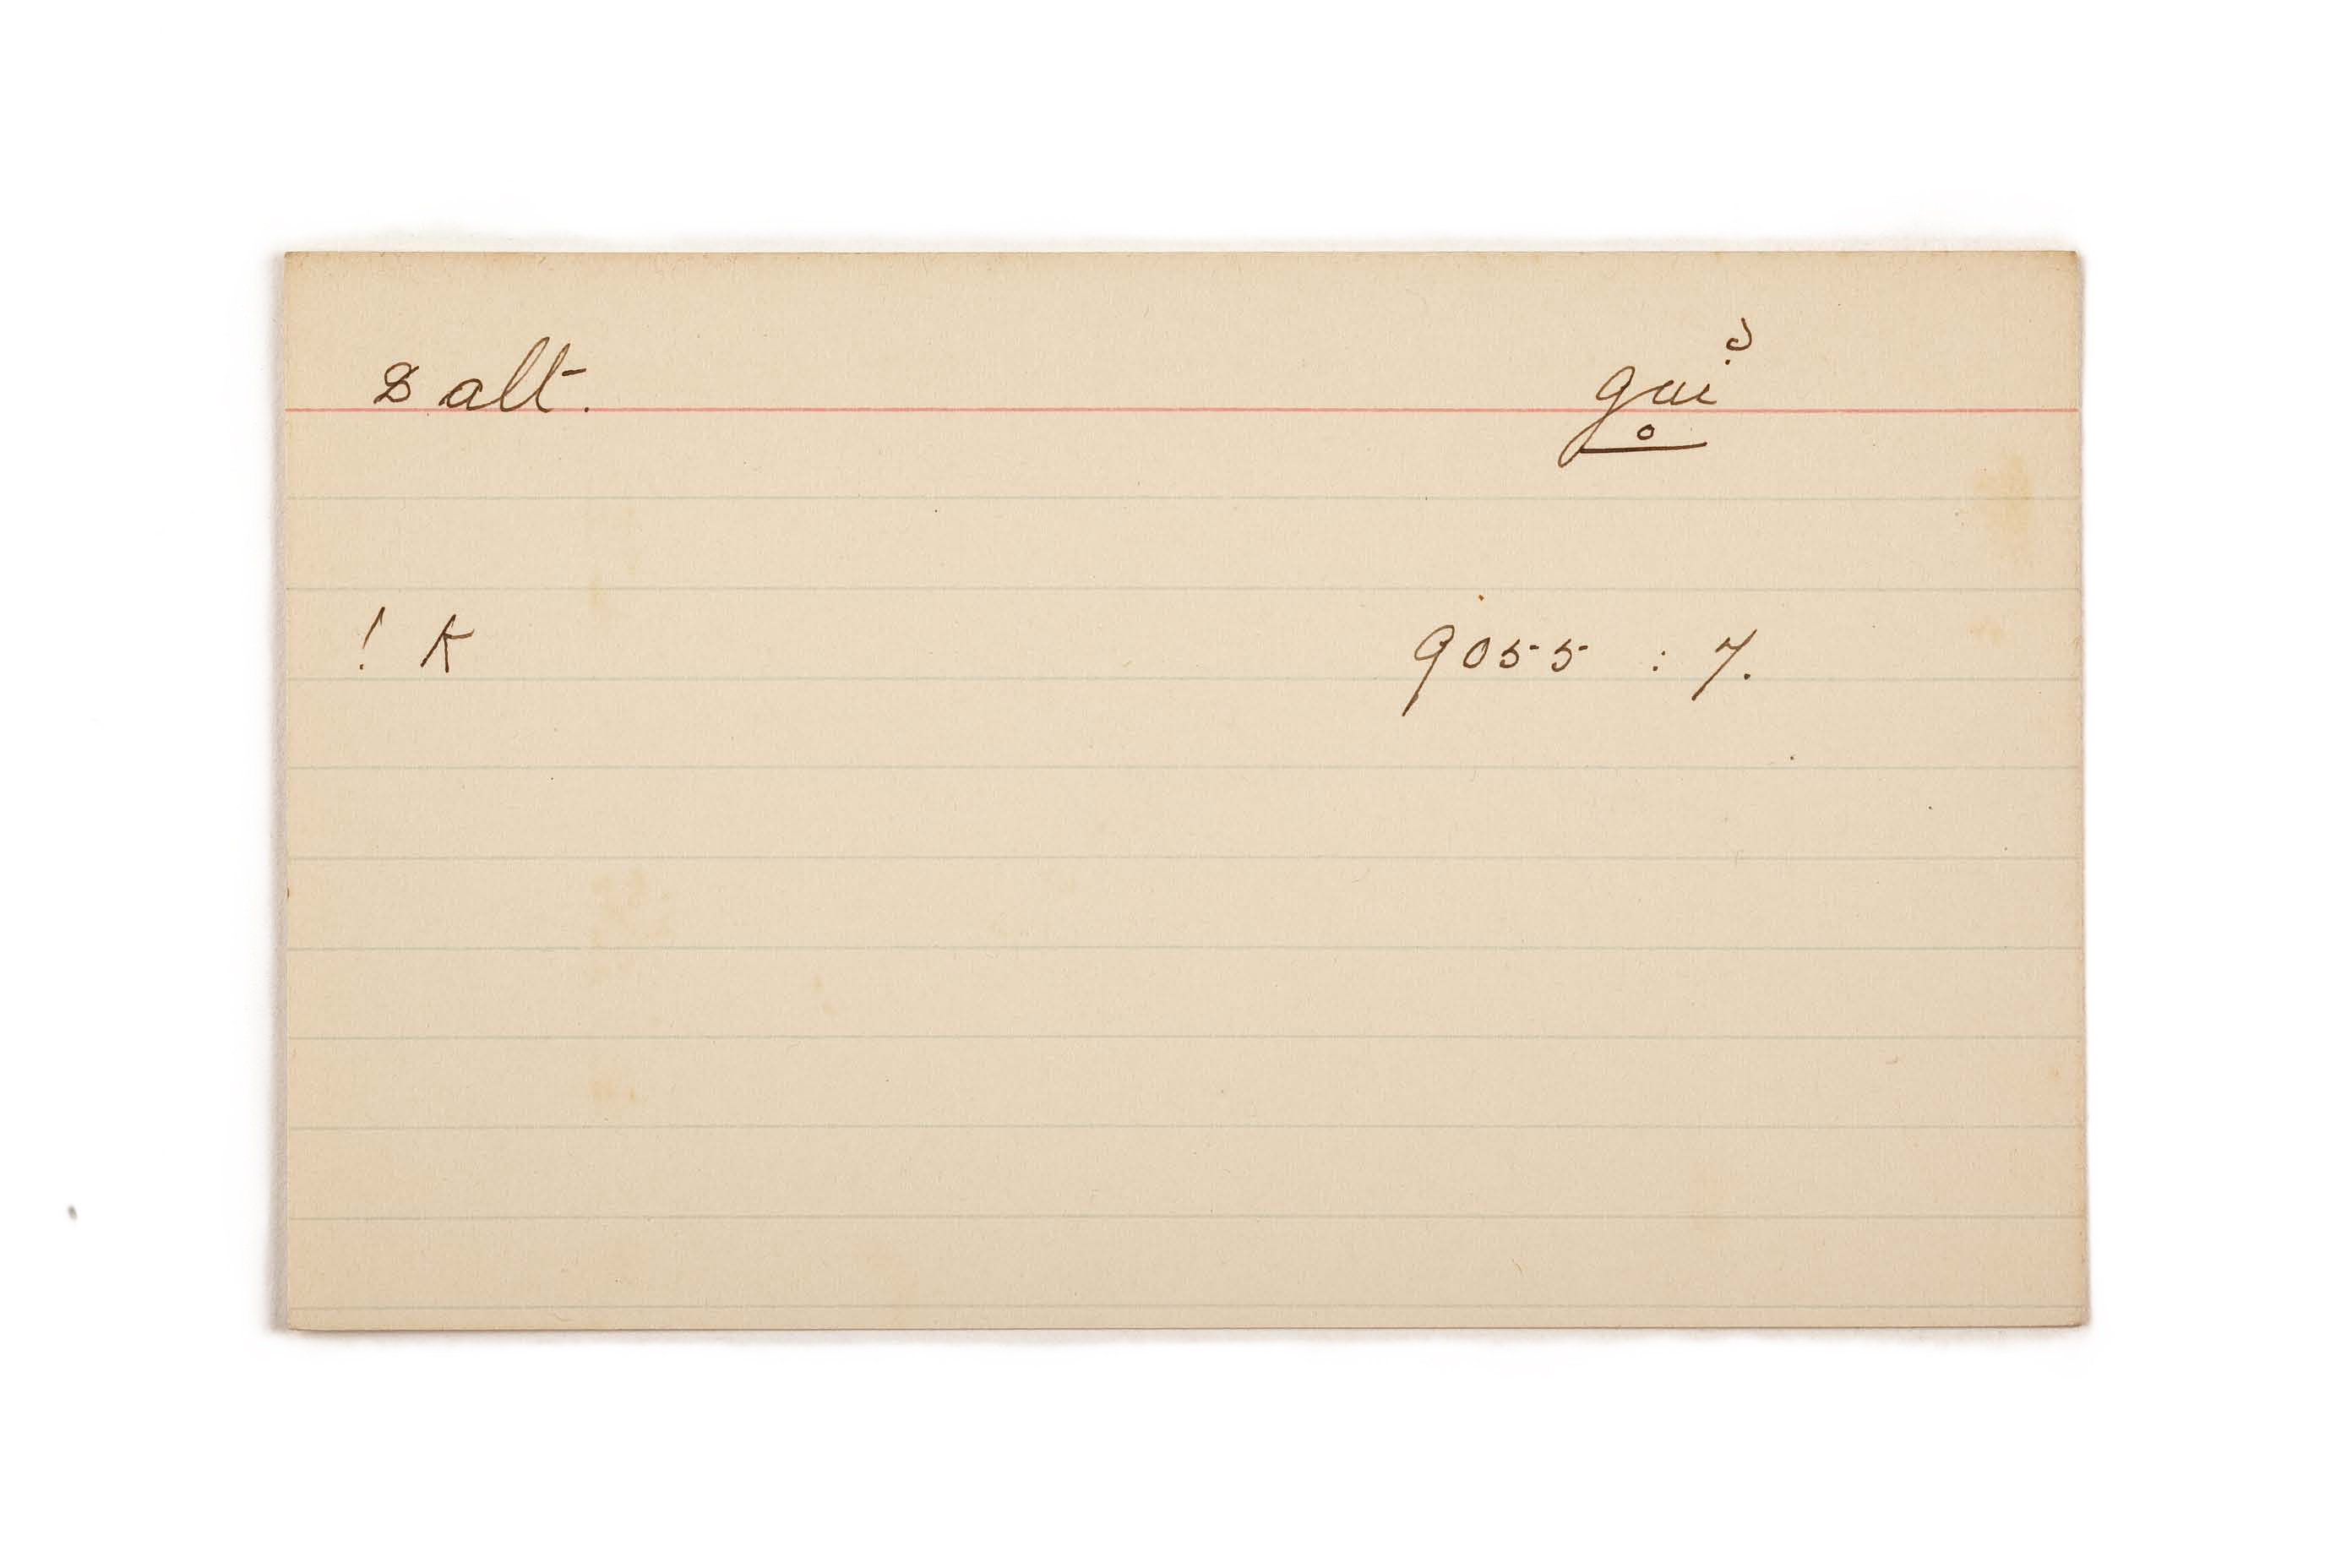 salt. gui
! K 9055 : 7.